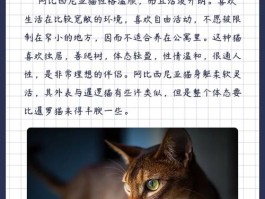 阿比西尼亚猫性格温顺，而且活泼开朗。喜欢
生活在比较宽敞的环境，喜欢自由活动，不愿被限
制在窄小的地方，因而不适合养在公寓里。这种猫
喜欢独居，善爬树，体态轻盈，性情温和，很通人
性，是非常理想的伴侣。阿比西尼亚猫身躯柔软灵
活，其外表与暹逻猫有些许类似，但是整个体态要
比暹罗猫来得丰腴一些。